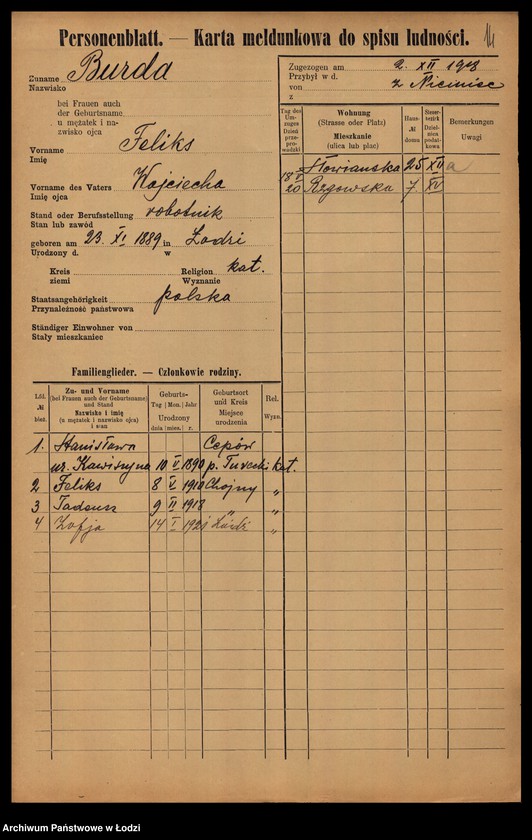 Personenblatt. — Karta meldunkowa do spisu ludności.
Zuname Burda
Nazwisko
bei Frauen auch
der Geburtsname
u mężatek i na-
zwisko ojca
Vorname Feliks
Imię
Vorname des Vaters Wojciecha
Imię ojca
Stand oder Berufsstellung robotnik
Stan lub zawód
geboren am 23. XI 1889 in Łodzi
Urodzony d. w
Kreis Religion kat.
ziemi Wyznanie
Staatsangehörigkeit polska
Przynależność państwowa
Ständiger Einwohner von
Stały mieszkaniec
Zugezogen am 2. XII 1918
Przybył w d.
von z Niemiec
z
Tag des Um-zuges Dzień prze-prowadzki
Wohnung (Strasse oder Platz) Mieszkanie (ulica lub plac)
Haus-№ domu
Steuer-bezirk Dziel-nica podat-kowa
Bemerkungen Uwagi
Słowianska 25 XII a
18 V 20 Rzgowska 7 XV
Familienglieder. — Członkowie rodziny.
Lfd. № bież.
Zu- und Vorname (bei Frauen auch der Geburtsname) und Stand Nazwisko i imię (u mężatek i nazwisko ojca) i stan
Geburts- Tag Mon. Jahr Urodzony dnia mies. r.
Geburtsort und Kreis Miejsce urodzenia
Rel. Wyzn.
1. Stanisława Cepów
ur. 10 V 1890 p. Turecki kat.
2 Feliks 8 V 1910 Chojny „
3 Tadeusz 9 II 1918 „ „
4 Zofja 14 I 1921 Łódź „
Archiwum Państwowe w Łodzi